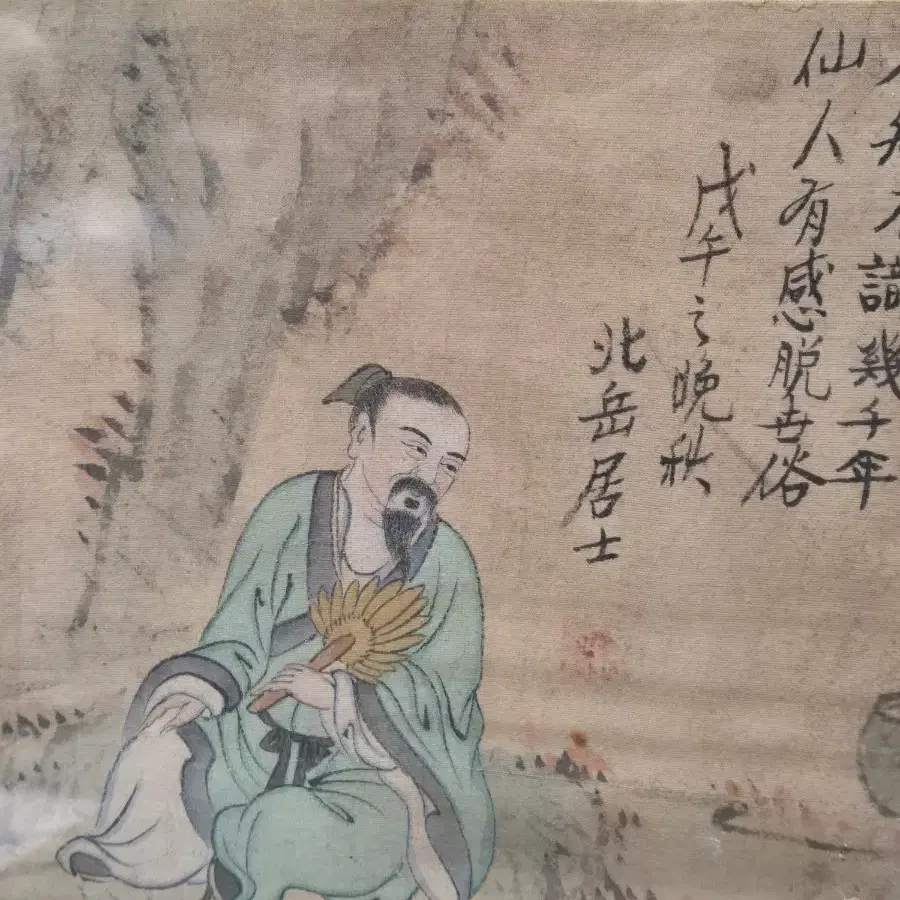 幾千年
仙人有感脱世俗
戊午之晚秋
北岳居士